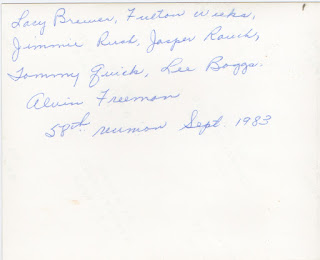 Lacy Brewer, Fulton Weeks,
Jimmie Rush, Jasper Rauch,
Tommy Quick, Lee Boggs.
Alvin Freeman
58th reunion Sept. 1983